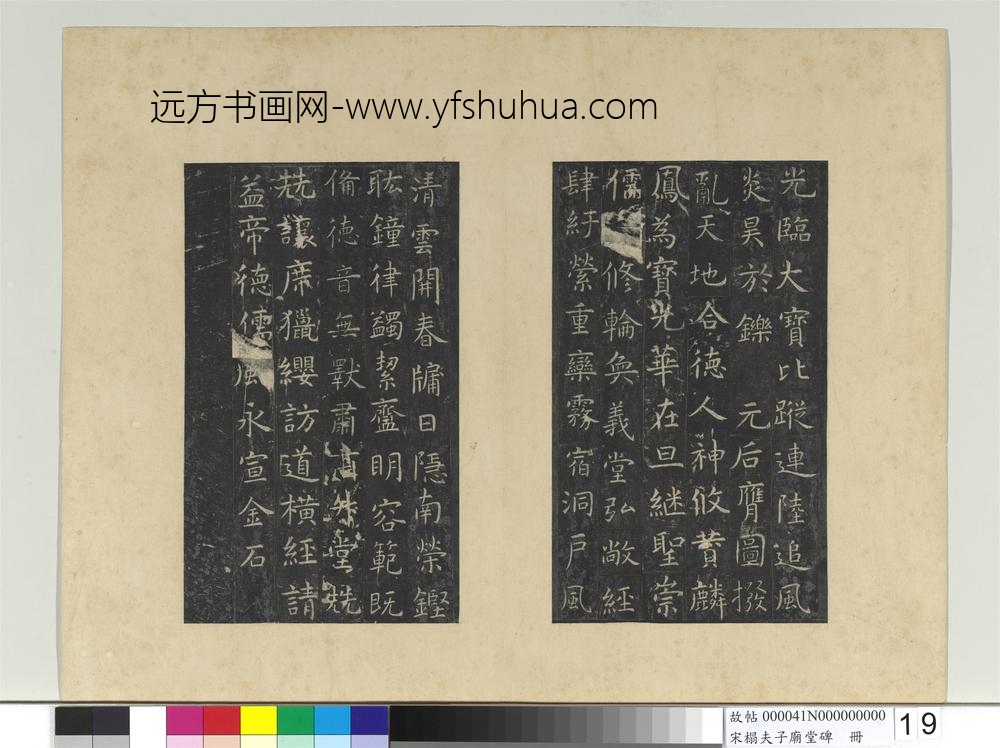 远方书画网-www.yfshuhua.com
光臨大寶比蹤連陸追風
炎昊於鑠 元后膺圖撥
亂天地合德人神攸賛麟
鳳為寶光華在旦継聖崇
儒修輪奐義堂弘敞經
肆紆縈重欒霧宿洞戶風
清雲開春牖日隱南榮鏗
耾鐘律蠲絜齍明容範既
備德音無斁肅堂兟
兟讓席獵纓訪道橫經請
益帝德儒風永宣金石
故帖 000041N000000000
宋榻夫子廟堂碑 冊
19